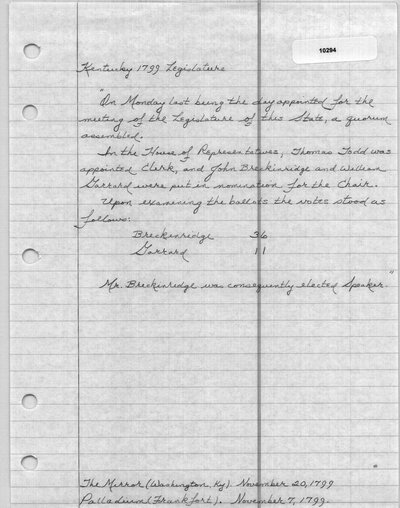 10294
Kentucky 1799 Legislature
"On Monday last being the day appointed for the
meeting of the Legislature of this State, a quorum
assembled.
In the House of Representatives, Thomas Todd was
appointed Clerk, and John Breckinridge and William
Garrard were put in nomination for the Chair.
Upon examining the ballots the votes stood as
follows:
Breckenridge 36
Garrard 11
Mr. Breckenridge was consequently elected Speaker."
The Mirror (Washington, Ky). November 20, 1799
Palladium (Frankfort). November 7, 1799.